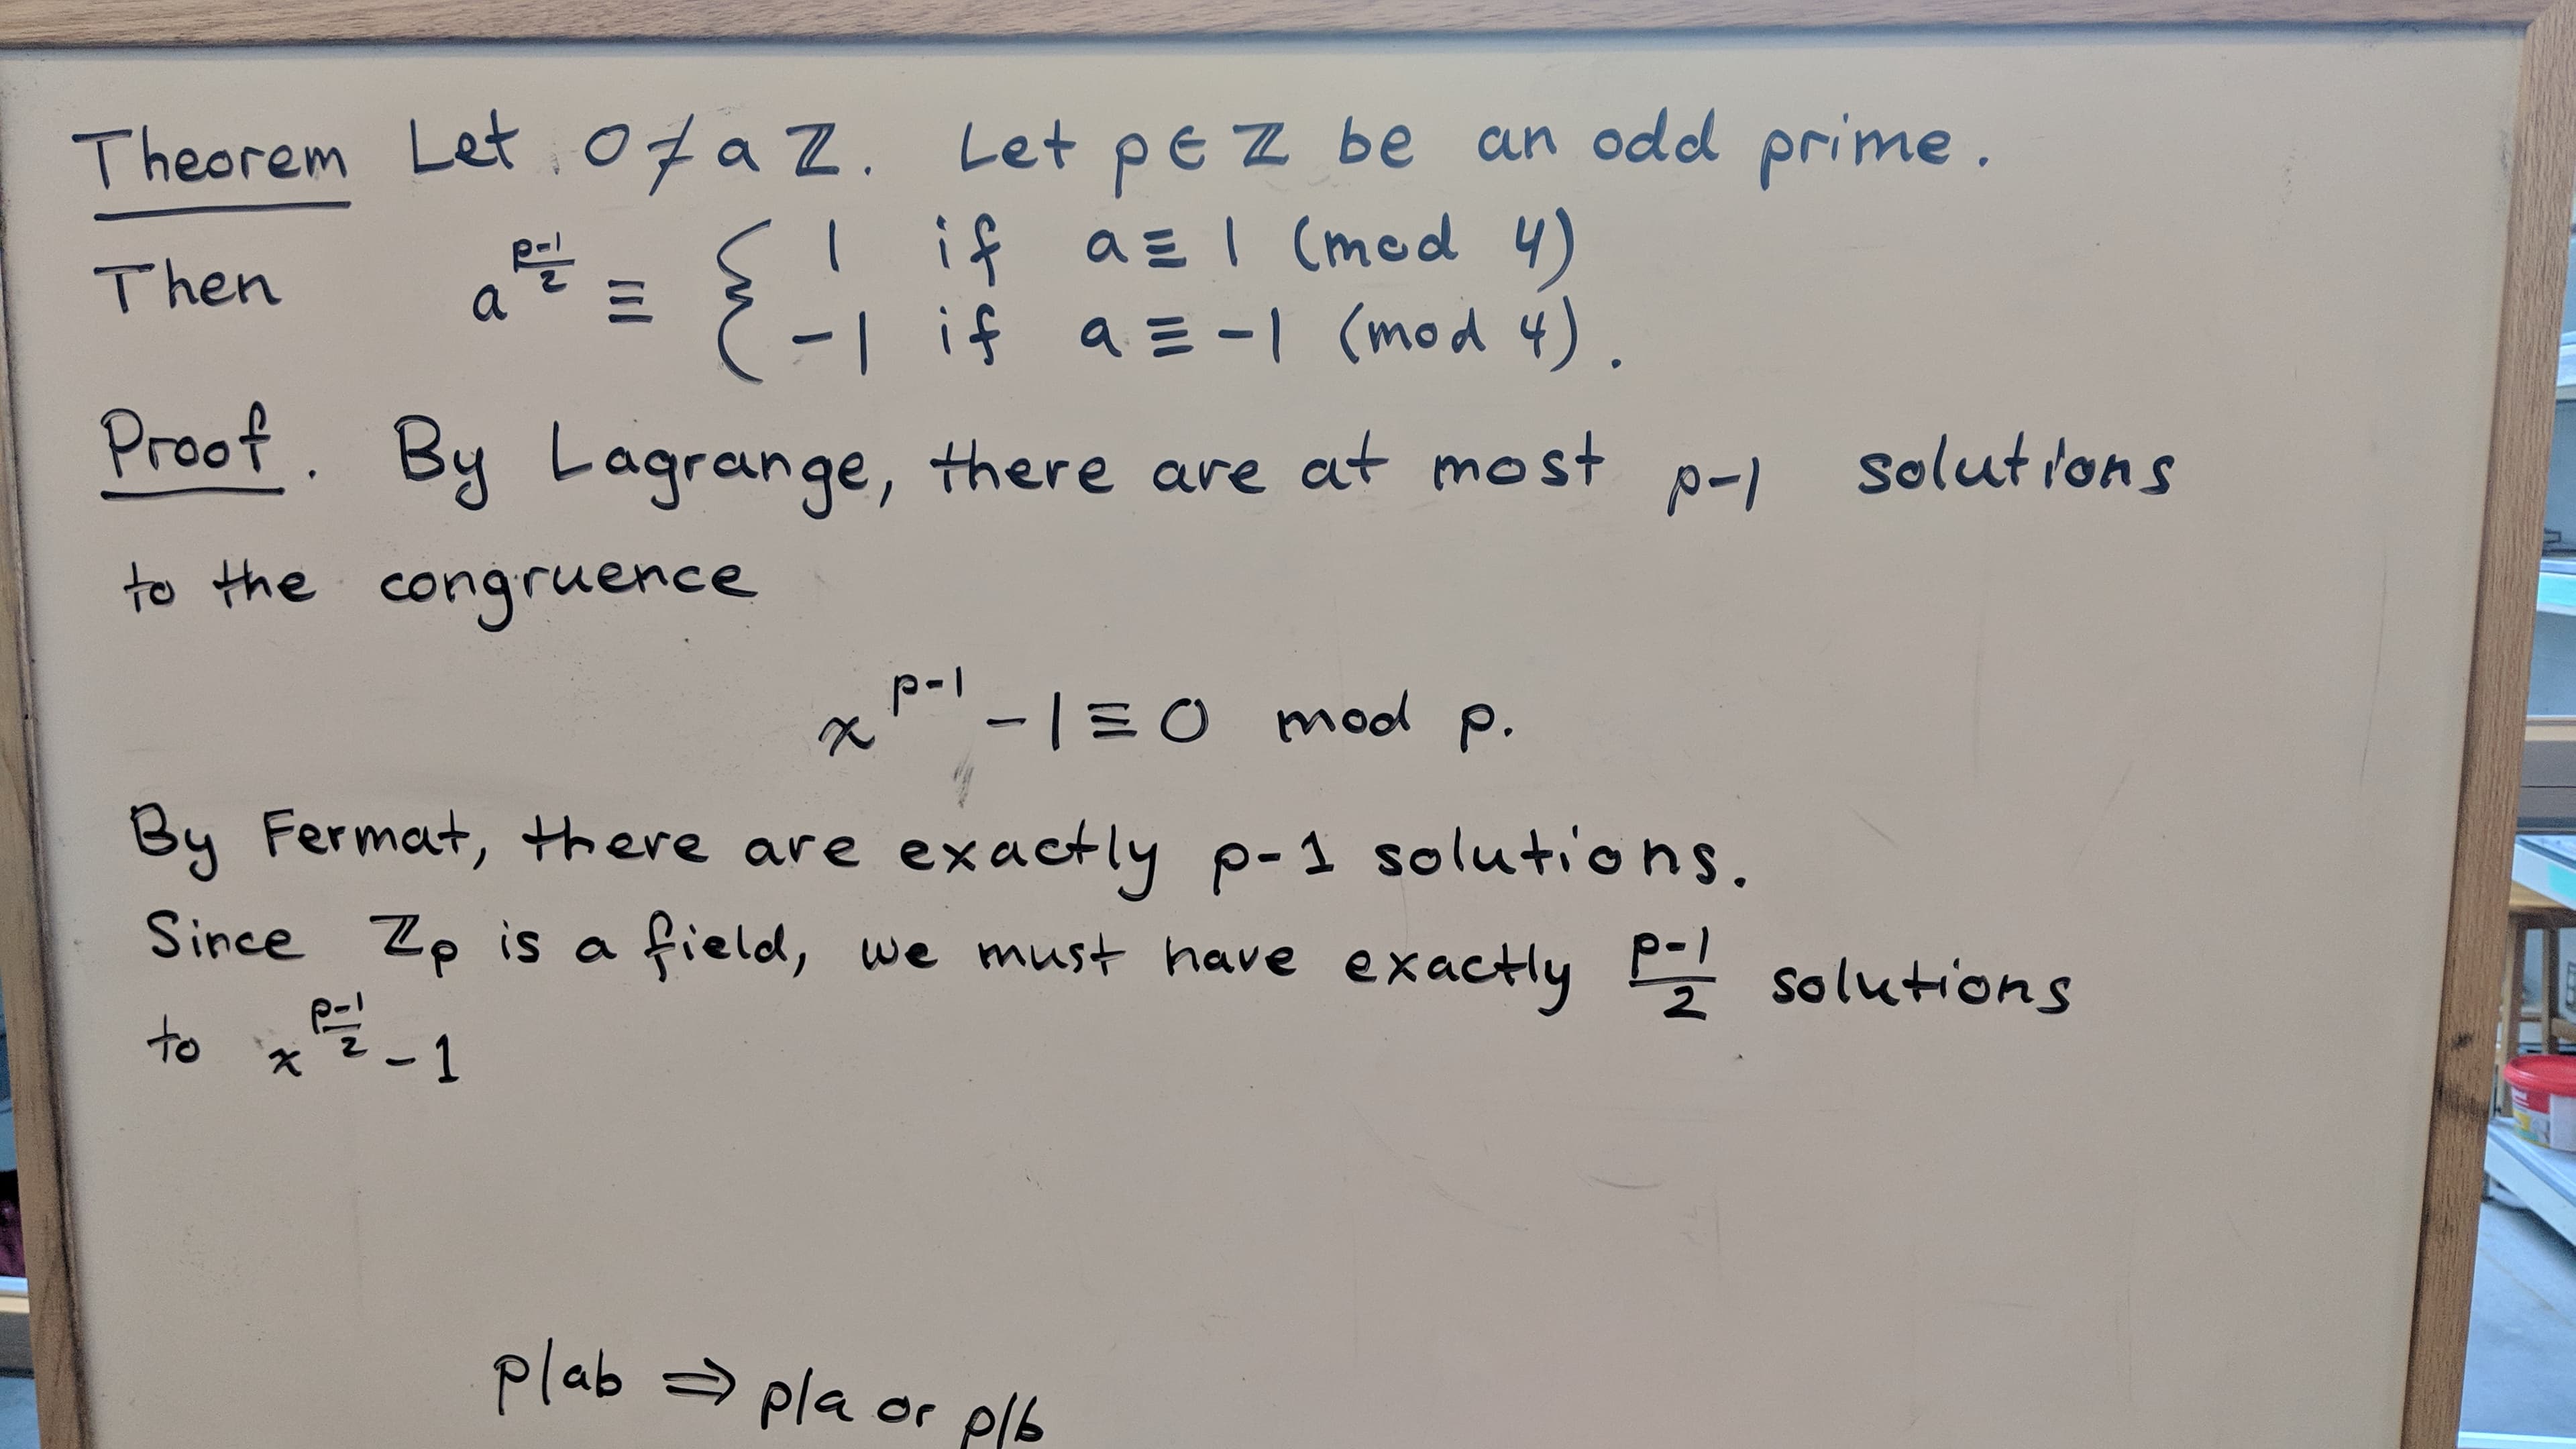 Theorem Let 0 ≠ a ℤ. Let p ∈ ℤ be an odd prime.
Then a^{\frac{p-1}{2}} ≡ { 1 if a ≡ 1 (mod 4)
-1 if a ≡ -1 (mod 4).
Proof. By Lagrange, there are at most p-1 solutions
to the congruence
x^{p-1} - 1 ≡ 0 mod p.
By Fermat, there are exactly p-1 solutions.
Since ℤ_p is a field, we must have exactly \frac{p-1}{2} solutions
to x^{\frac{p-1}{2}} - 1
p|ab ⇒ p|a or p|b